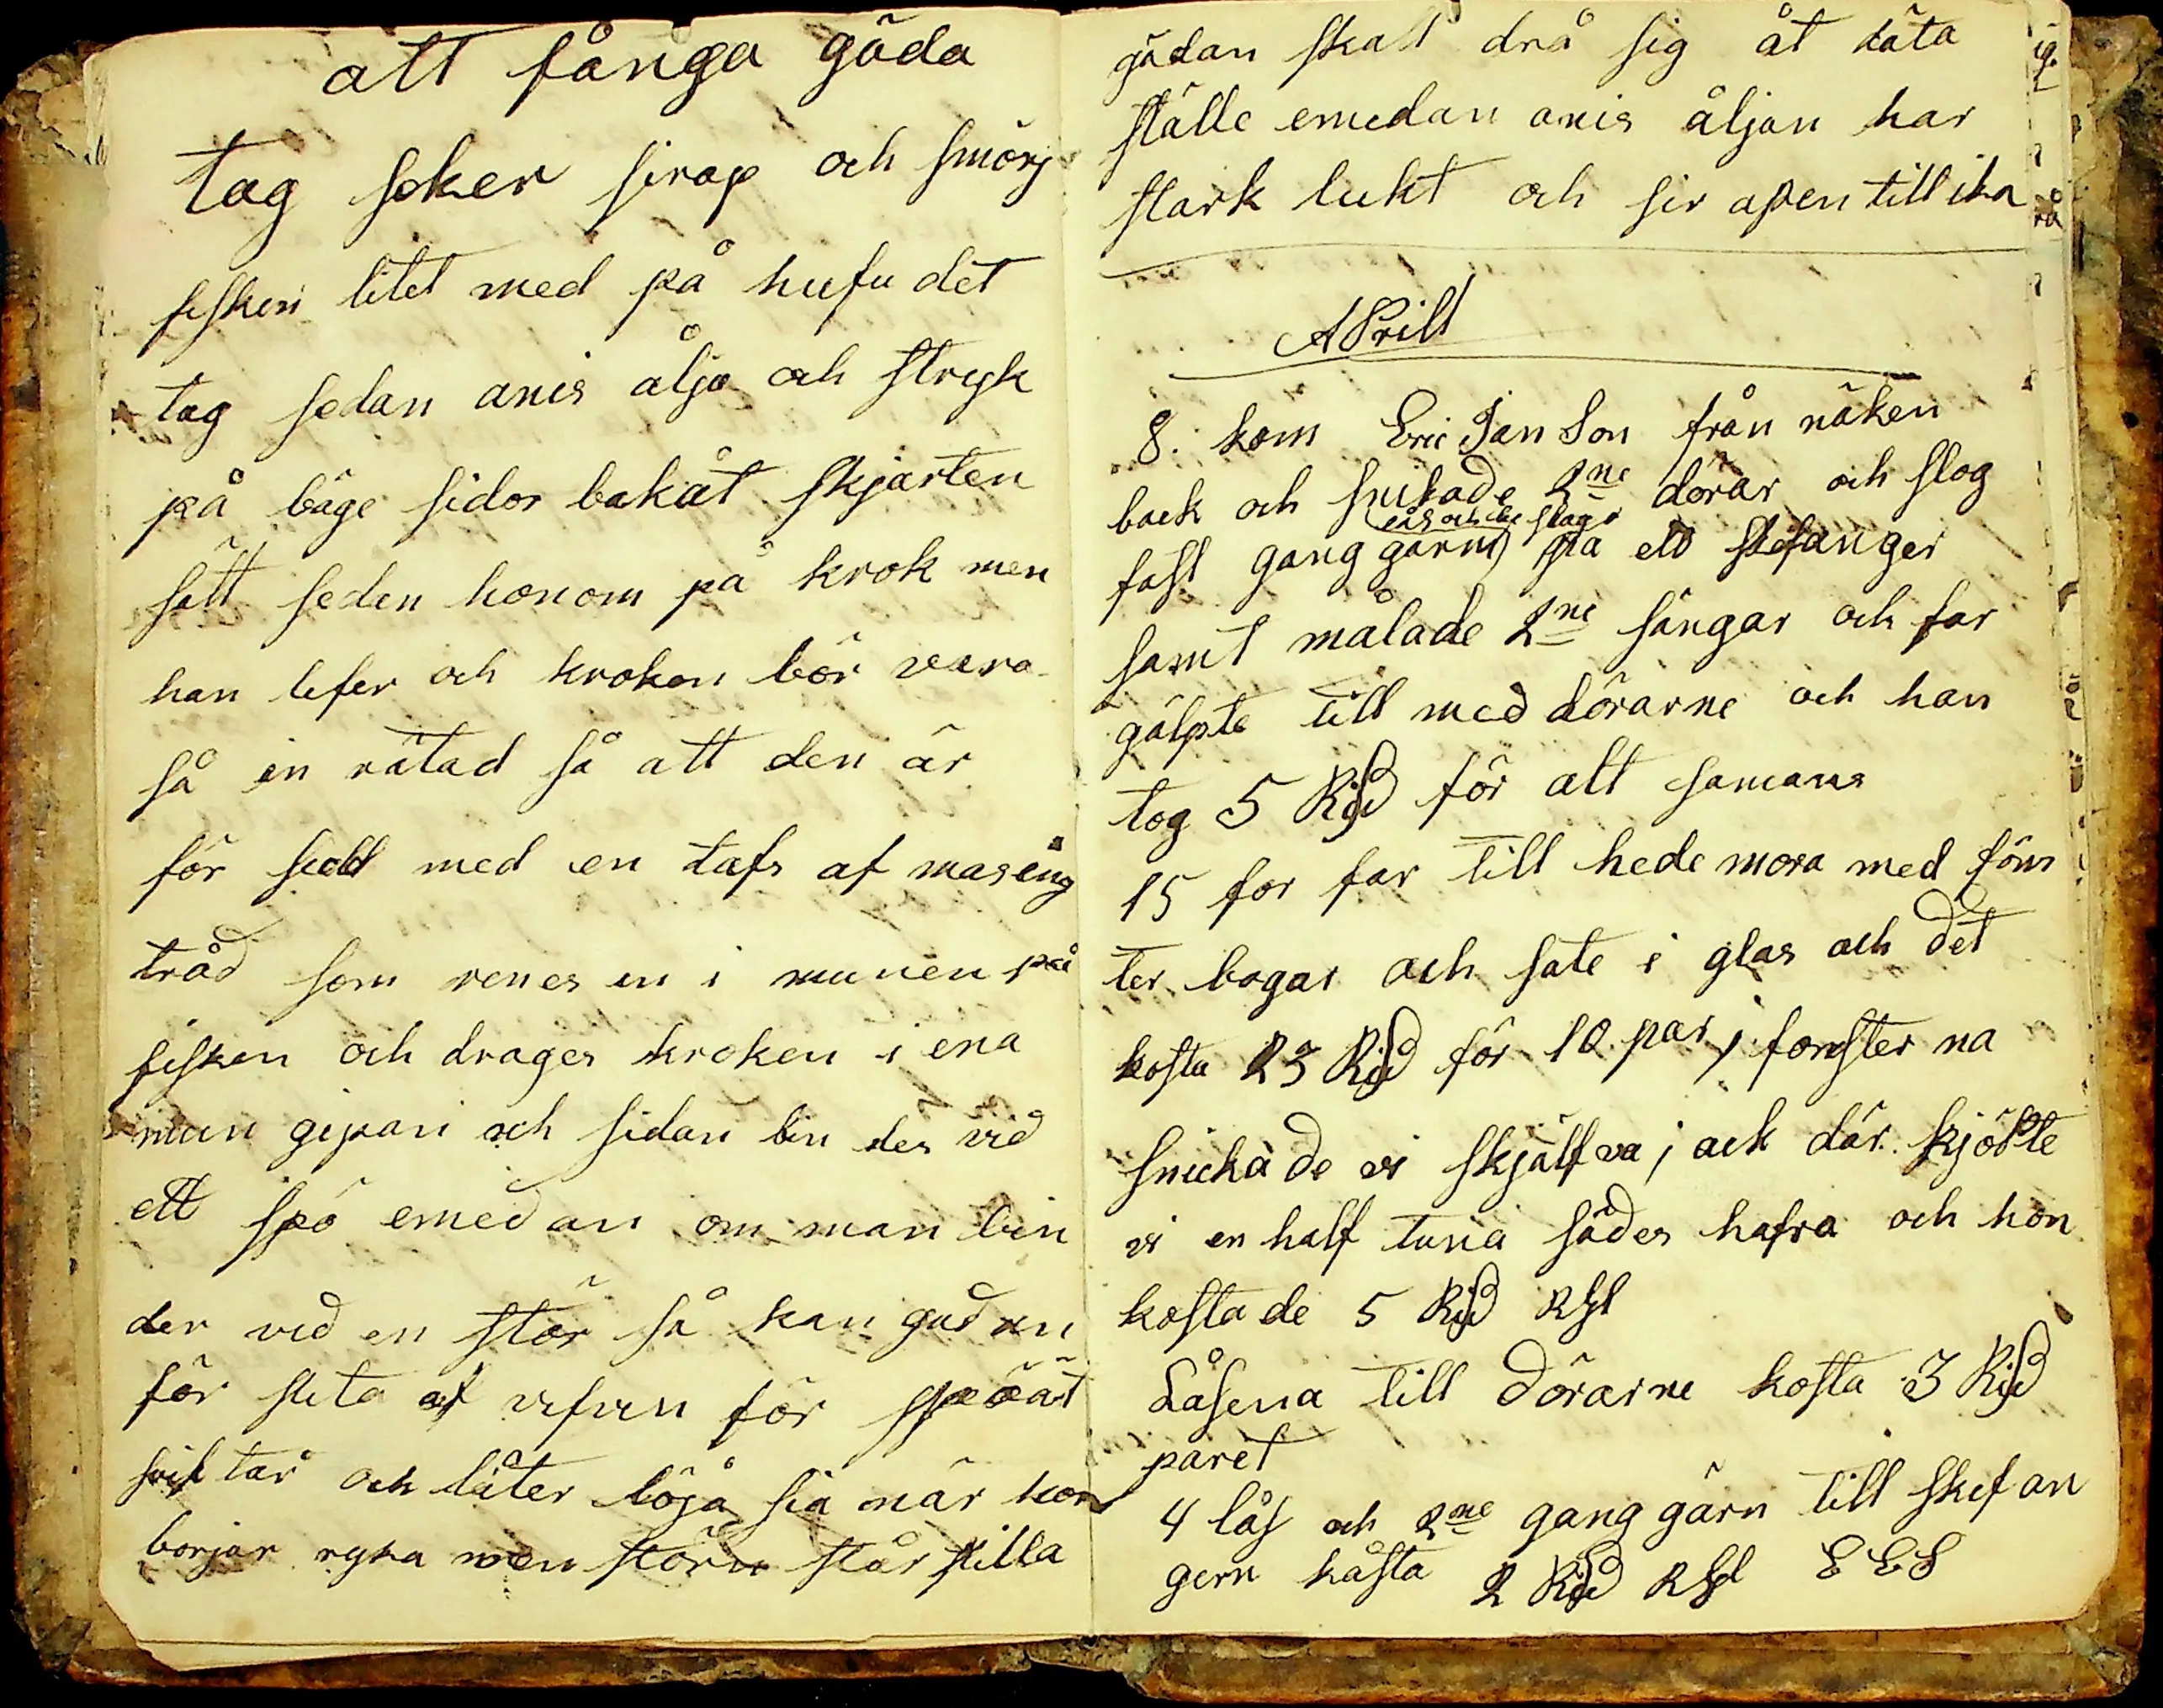 att fånga gäda
tag soker sirap och smörj
fisken litet med på hufu det
tag sedan anis ålja och stryk
på bäge sidor bakåt skjärten
sätt seden honom på krok men
han lefer och kroken bör vara
så in rätad så att den är
för sedd med en tafs af masēng
tråd som renes en i munen på
fisken och drages kroken i ena
mun gipan och sidan bin des vid
ett spö emedan om man bin
der vid en stör så kan gädan
för slita af refven för spöät
svik tar och låter löja sia när hon
börjar ryka men störn står stilla
gädan skall drå sig åt däta
ställe emedan anis åljan har
stark lukt och sir apen till ika
APrill
8. kom Eric Jan Son från näken
back och snikade 2ne dörar och slog
lås och be slag
fast gang gärn på ett skefanger
samt målade 2ne sängar och far
gälpte till med dörarne och han
tog 5 Rið för alt samans
15 for far till hede mora med föns
ter bogar och sate i glas och det
kosta 23 Rið för 10 par, fönster na
snicka de vi skjälfva, ock där kjöbte
vi en half tuna sädes hafra och hon
kosta de 5 Rið RGl
Låsena till dörarne kosta 3 Rið
paret
4 lås och 2ne gang gärn till skefan
gern kåsta 2 Rið RGl EES